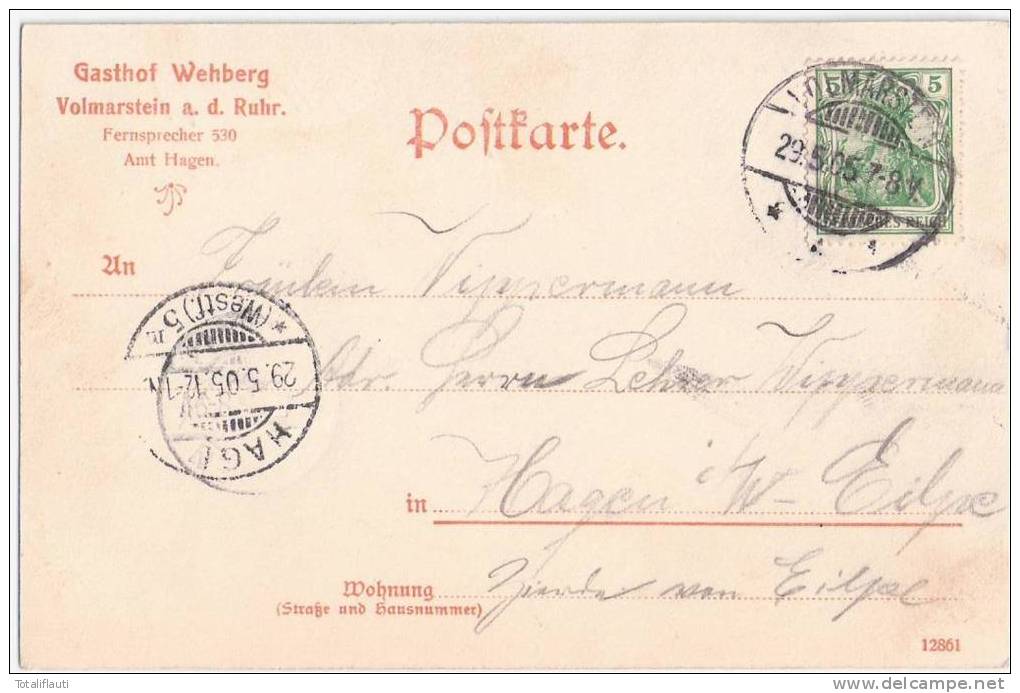 Gasthof Wehberg
Volmarstein a. d. Ruhr.
Fernsprecher 530
Amt Hagen.
Postkarte.
5 5
VOLMARSTEIN
29.5.05 7-8 V.
DEUTSCHES REICH
An Fräulein Vippermann
*(Westf.) 5
29.5.05. 12-1 N.
HAGEN
Adr. Herrn Lehrer Vippermann
in Hagen i/W - Eilpe
Wohnung
(Straße und Hausnummer)
Zierde von Eilpe
12861
Totaliflauti
delcampe.net